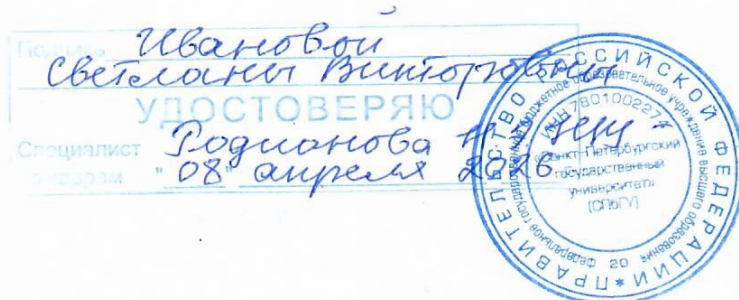 Подпись Ивановой
Светланы Викторовны
УДОСТОВЕРЯЮ
Специалист Родионова
по кадрам "08" апреля 2026
ПРАВИТЕЛЬСТВО РОССИЙСКОЙ ФЕДЕРАЦИИ *
федеральное государственное бюджетное образовательное учреждение высшего образования
ИНН 7801002274
«Санкт-Петербургский
государственный
университет»
(СПбГУ)
20